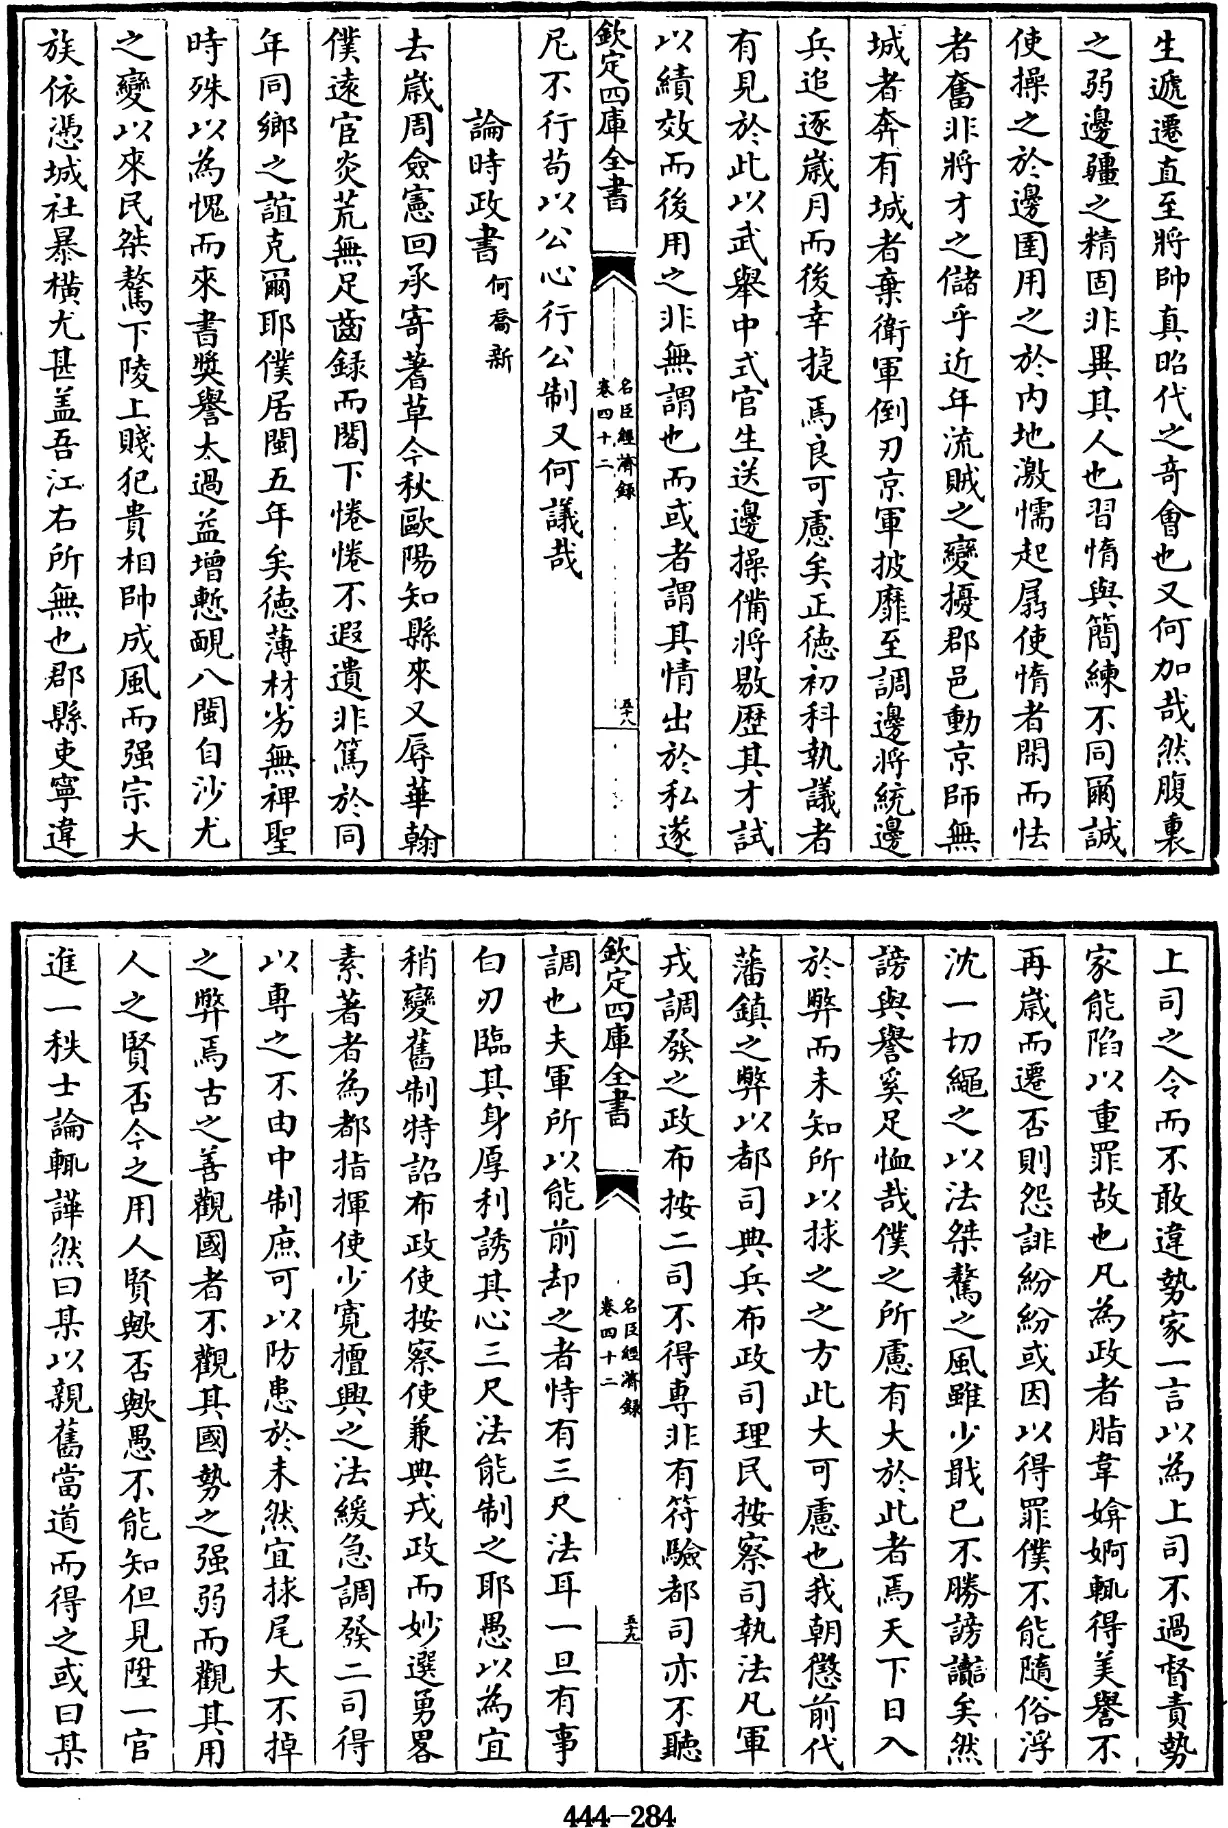 生遞遷直至將帥真昭代之竒會也又何加哉然腹裏
之弱邊疆之精固非異其人也習惰與簡練不同爾誠
使操之於邊圉用之於内地激懦起孱使惰者閑而怯
者奮非將才之儲乎近年流賊之變擾郡邑動京師無
城者奔有城者棄衛軍倒刃京軍披靡至調邊將統邊
兵追逐嵗月而後幸捷焉良可慮矣正德初科執議者
有見於此以武舉中式官生送邊操備將敭歴其才試
以績效而後用之非無謂也而或者謂其情出於私遂
欽定四庫全書
名臣經濟録
卷四十二
五十八
尼不行茍以公心行公制又何議哉
論時政書 何喬新
去嵗周僉憲回承寄蓍草今秋歐陽知縣來又辱華翰
僕逺宦炎荒無足齒録而閣下惓惓不遐遺非篤於同
年同鄉之誼克爾耶僕居閩五年矣德薄材劣無裨聖
時殊以為愧而來書奬譽太過益增慙靦八閩自沙尤
之變以來民桀驁下陵上賤犯貴相帥成風而强宗大
族依憑城社暴横尤甚盖吾江右所無也郡縣吏寧違
上司之令而不敢違勢家一言以為上司不過督責勢
家能陷以重罪故也凡為政者脂韋媕婀輒得美譽不
再嵗而遷否則怨誹紛紛或因以得罪僕不能隨俗浮
沈一切繩之以法桀驁之風雖少戢已不勝謗讟矣然
謗與譽奚足恤哉僕之所慮有大於此者焉天下日入
於弊而未知所以捄之之方此大可慮也我朝懲前代
藩鎮之弊以都司典兵布政司理民按察司執法凡軍
戎調發之政布按二司不得專非有符驗都司亦不聽
欽定四庫全書
名臣經濟録
卷四十二
五十九
調也夫軍所以能前却之者恃有三尺法耳一旦有事
白刃臨其身厚利誘其心三尺法能制之耶愚以為宜
稍變舊制特詔布政使按察使兼典戎政而妙選勇畧
素著者為都指揮使少寛擅興之法緩急調發二司得
以專之不由中制庶可以防患於未然宜捄尾大不掉
之弊焉古之善觀國者不觀其國勢之强弱而觀其用
人之賢否今之用人賢歟否歟愚不能知但見陞一官
進一秩士論輒譁然曰某以親舊當道而得之或曰某
444-284